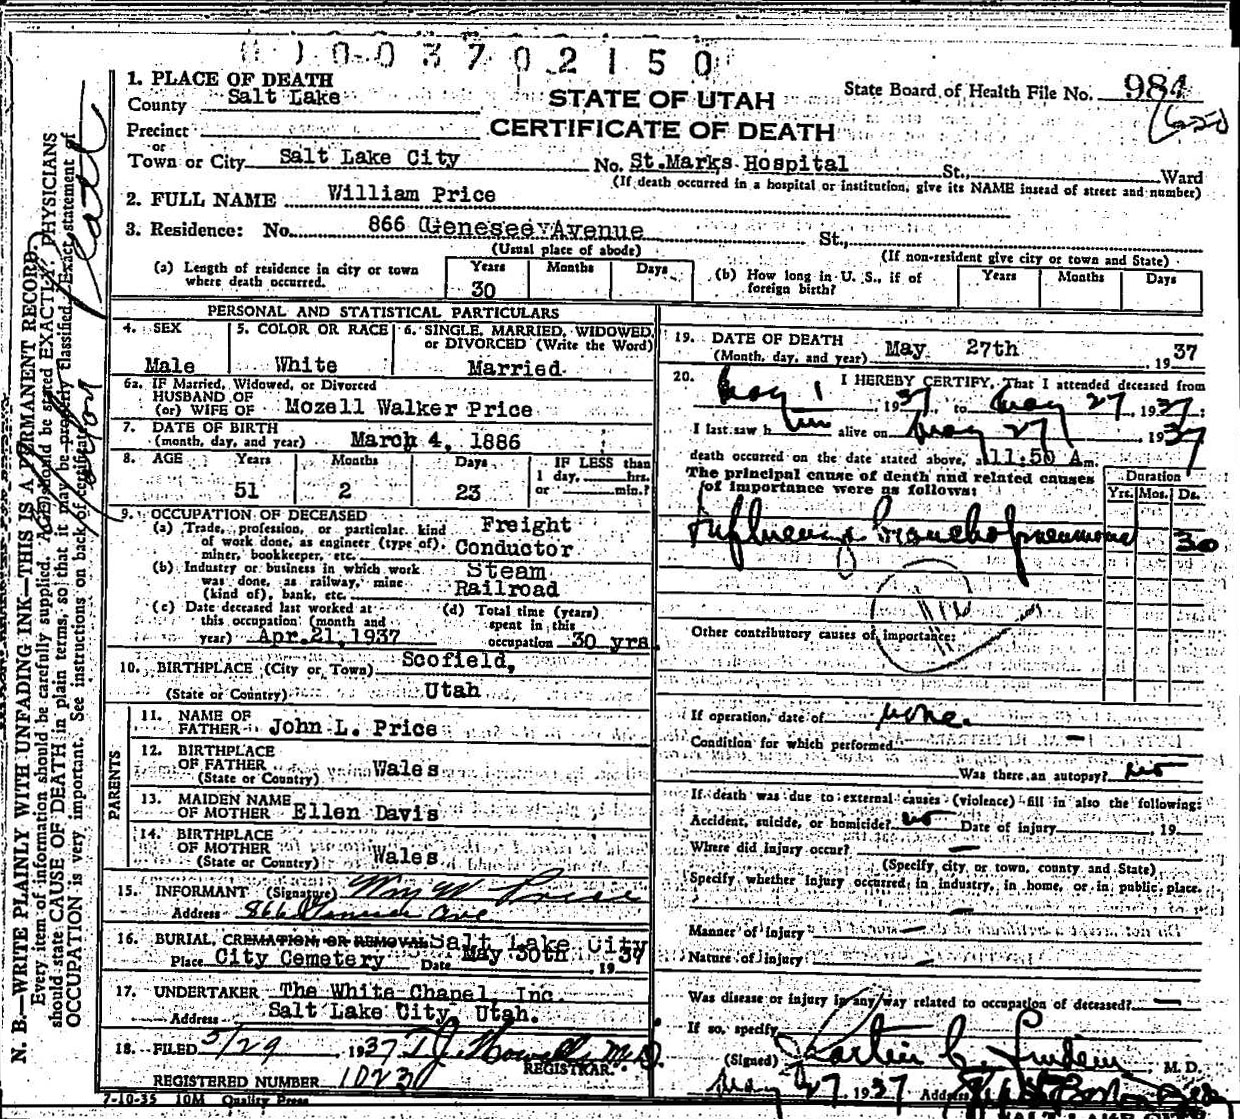 8100370 2150
1. PLACE OF DEATH
County Salt Lake
STATE OF UTAH
State Board of Health File No. 984
CERTIFICATE OF DEATH
Precinct
or
Town or City Salt Lake City No. St.Marks Hospital St., Ward
(If death occurred in a hospital or institution, give its NAME instead of street and number)
2. FULL NAME William Price
3. Residence: No. 866 Genesee Avenue St.,
(Usual place of abode) (If non-resident give city or town and State)
(a) Length of residence in city or town where death occurred. Years 30 Months Days
(b) How long in U. S., if of foreign birth? Years Months Days
PERSONAL AND STATISTICAL PARTICULARS
4. SEX Male
5. COLOR OR RACE White
6. SINGLE, MARRIED, WIDOWED, or DIVORCED (Write the Word) Married
6a. IF Married, Widowed, or Divorced
HUSBAND OF
(or) WIFE OF Mozell Walker Price
7. DATE OF BIRTH
(month, day, and year) March 4, 1886
8. AGE Years 51 Months 2 Days 23 IF LESS than 1 day, hrs. or min.?
9. OCCUPATION OF DECEASED
(a) Trade, profession, or particular kind of work done, as engineer (type of), miner, bookkeeper, etc. Freight Conductor
(b) Industry or business in which work was done, as railway, mine (kind of), bank, etc. Steam Railroad
(c) Date deceased last worked at this occupation (month and year) Apr.21,1937
(d) Total time (years) spent in this occupation 30 yrs.
10. BIRTHPLACE (City or Town) Scofield,
(State or Country) Utah
PARENTS
11. NAME OF FATHER John L. Price
12. BIRTHPLACE OF FATHER
(State or Country) Wales
13. MAIDEN NAME OF MOTHER Ellen Davis
14. BIRTHPLACE OF MOTHER
(State or Country) Wales
15. INFORMANT (Signature) Wm W Price
Address 866 Genesee Ave
16. BURIAL, CREMATION, OR REMOVAL Salt Lake City
Place City Cemetery Date May 30th, 1937
17. UNDERTAKER The White Chapel Inc.
Address Salt Lake City, Utah.
18. FILED 5/29 1937 T.J. Howells M.D.
REGISTRAR.
REGISTERED NUMBER 1023
7-10-35 10M Quality Press
19. DATE OF DEATH
(Month, day, and year) May 27th 1937
20. I HEREBY CERTIFY, That I attended deceased from
May 1, 1937, to May 27, 1937;
I last saw him alive on May 27, 1937
death occurred on the date stated above, at 11:50 Am.
The principal cause of death and related causes of importance were as follows:
Duration
Yrs. Mos. Ds.
Influenza Bronchopneumonia 30
Other contributory causes of importance:
If operation, date of none.
Condition for which performed —
Was there an autopsy? no
If death was due to external causes (violence) fill in also the following:
Accident, suicide, or homicide? no Date of injury 19
Where did injury occur? —
(Specify city or town, county and State)
Specify whether injury occurred in industry, in home, or in public place.
—
Manner of injury —
Nature of injury —
Was disease or injury in any way related to occupation of deceased? —
If so, specify
(Signed) Martin C. Lindem, M. D.
May 27, 1937 Address
N. B.—WRITE PLAINLY WITH UNFADING INK—THIS IS A PERMANENT RECORD.
Every item of information should be carefully supplied. AGE should be stated EXACTLY. PHYSICIANS
should state CAUSE OF DEATH in plain terms, so that it may be properly classified. Exact statement of
OCCUPATION is very important. See instructions on back of certificate.